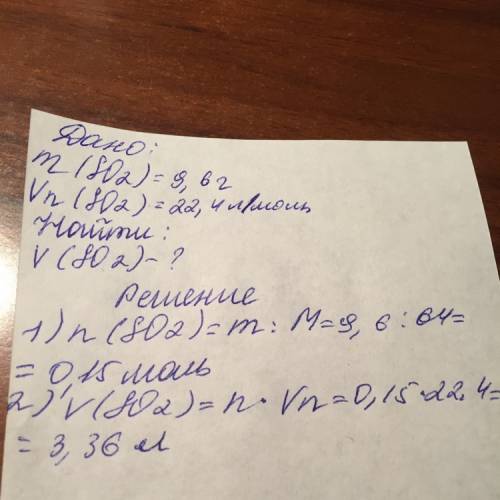 Дано:
m (SO2) = 9,6 г
Vn (SO2) = 22,4 л/моль
Найти:
V (SO2) - ?
Решение
1) n (SO2) = m : M = 9,6 : 64 =
= 0,15 моль
2) V (SO2) = n · Vn = 0,15 · 22,4 =
= 3,36 л